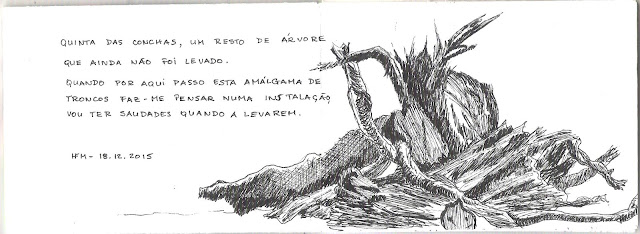 QUINTA DAS CONCHAS, UM RESTO DE ÁRVORE
QUE AINDA NÃO FOI LEVADO.
QUANDO POR AQUI PASSO ESTA AMÁLGAMA DE
TRONCOS FAZ-ME PENSAR NUMA INSTALAÇÃO
VOU TER SAUDADES QUANDO A LEVAREM.
HFM - 18.12.2015